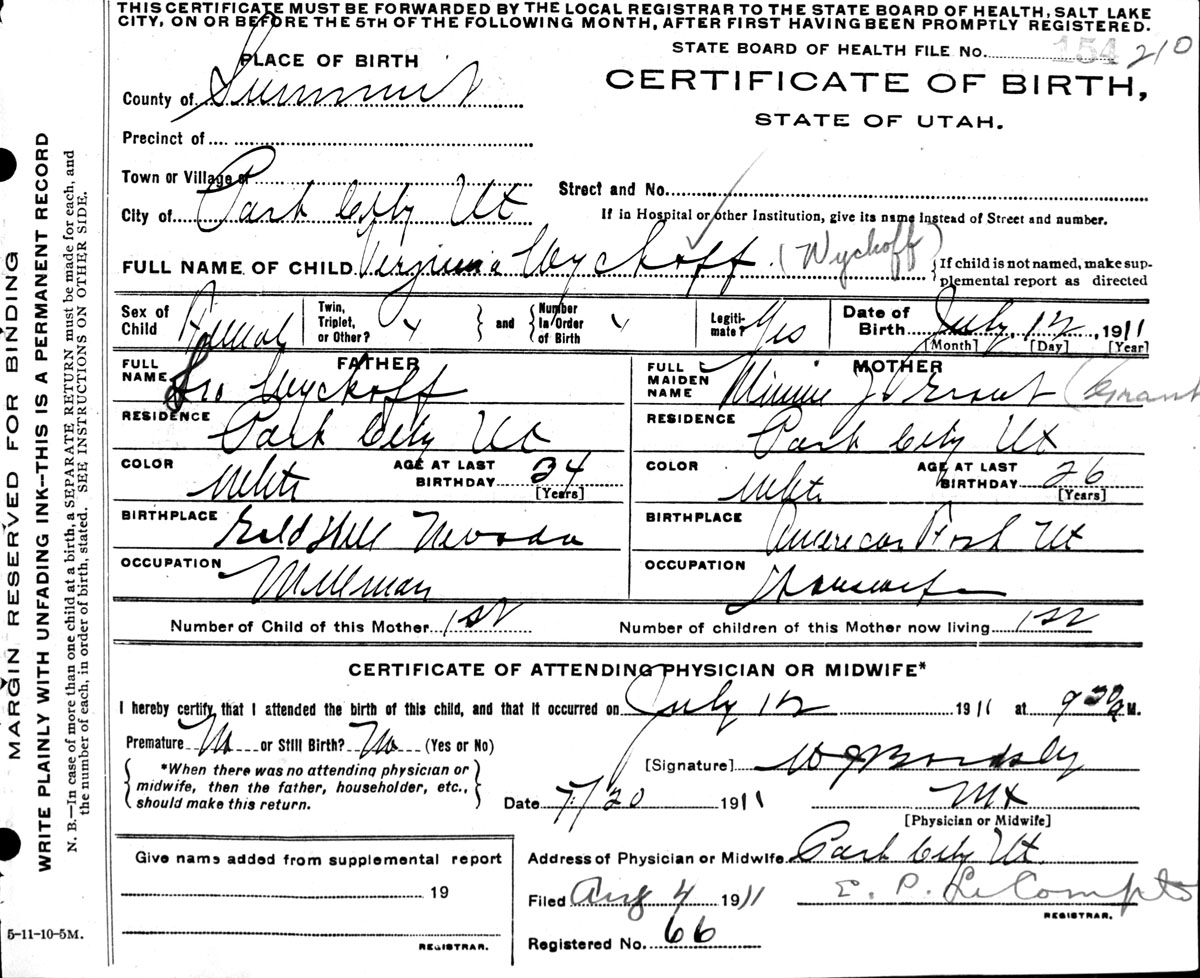 THIS CERTIFICATE MUST BE FORWARDED BY THE LOCAL REGISTRAR TO THE STATE BOARD OF HEALTH, SALT LAKE
CITY, ON OR BEFORE THE 5TH OF THE FOLLOWING MONTH, AFTER FIRST HAVING BEEN PROMPTLY REGISTERED.
STATE BOARD OF HEALTH FILE No. 154 210
PLACE OF BIRTH
CERTIFICATE OF BIRTH,
STATE OF UTAH.
County of Summit
Precinct of
Town or Village of
City of Park City Ut
Street and No.
If in Hospital or other Institution, give its name instead of Street and number.
FULL NAME OF CHILD Virginia Wyckoff (Wyckoff)
If child is not named, make supplemental report as directed
Sex of Child Female
Twin, Triplet, or Other?
and
Number In Order of Birth
Legitimate? Yes
Date of Birth July, 12, 1911
[Month] [Day] [Year]
FATHER
FULL NAME Wyckoff
RESIDENCE Park City Ut
COLOR White
AGE AT LAST BIRTHDAY 24
[Years]
BIRTHPLACE Gold Hill Nevada
OCCUPATION Millman
MOTHER
FULL MAIDEN NAME Minnie J Grant (Grant
RESIDENCE Park City Ut
COLOR White
AGE AT LAST BIRTHDAY 26
[Years]
BIRTHPLACE American Fork Ut
OCCUPATION Housewife
Number of Child of this Mother 1st
Number of children of this Mother now living 1st
CERTIFICATE OF ATTENDING PHYSICIAN OR MIDWIFE*
I hereby certify that I attended the birth of this child, and that it occurred on July 12 1911 at 9 30 a M.
Premature No or Still Birth? No (Yes or No)
*When there was no attending physician or
midwife, then the father, householder, etc.,
should make this return.
[Signature] W J Bardsley
Date 7/20 1911
[Physician or Midwife]
Address of Physician or Midwife Park City Ut.
Give name added from supplemental report
19
REGISTRAR.
Filed Aug 4 1911 E. P. LeCompte
REGISTRAR.
Registered No. 66
5-11-10-5M.
MARGIN RESERVED FOR BINDING
WRITE PLAINLY WITH UNFADING INK--THIS IS A PERMANENT RECORD
N. B.—In case of more than one child at a birth, a SEPARATE RETURN must be made for each, and
the number of each, in order of birth, stated. SEE INSTRUCTIONS ON OTHER SIDE.